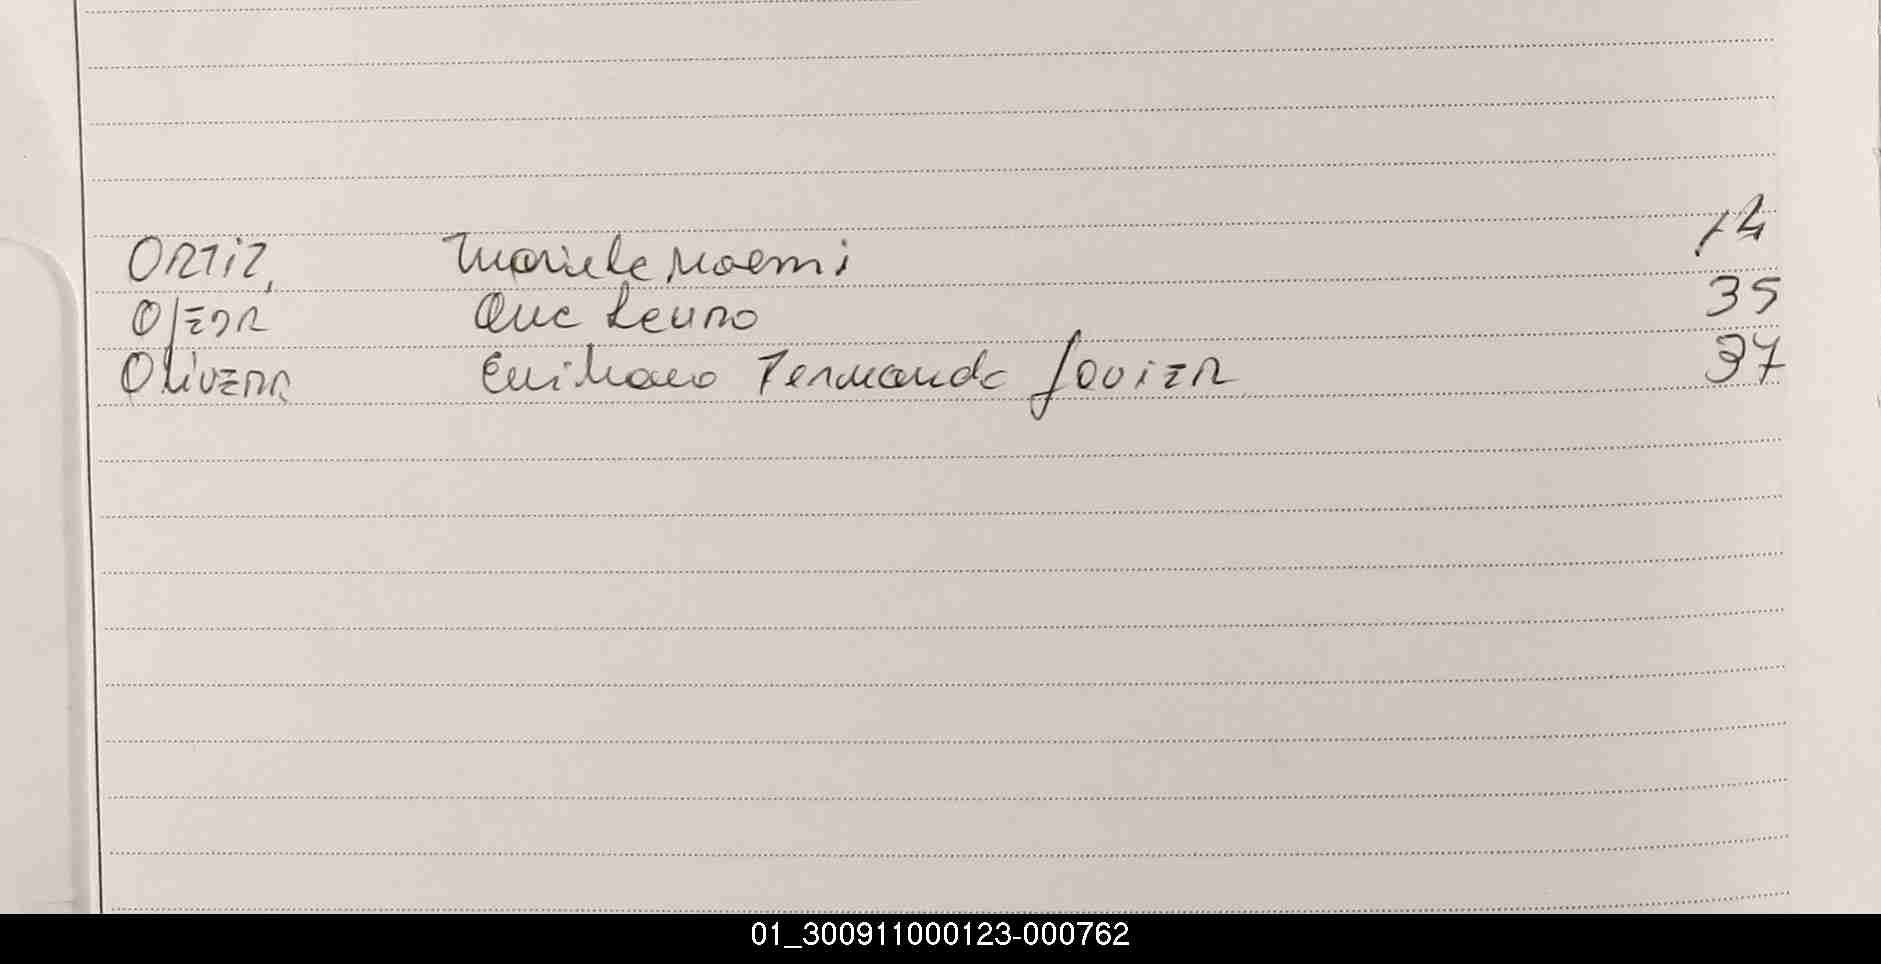 ORTiZ, Mariela Noemi 14
OJEDA Ana Laura 35
OLiVERA Emiliano Fernando JaviER 37
01_300911000123-000762